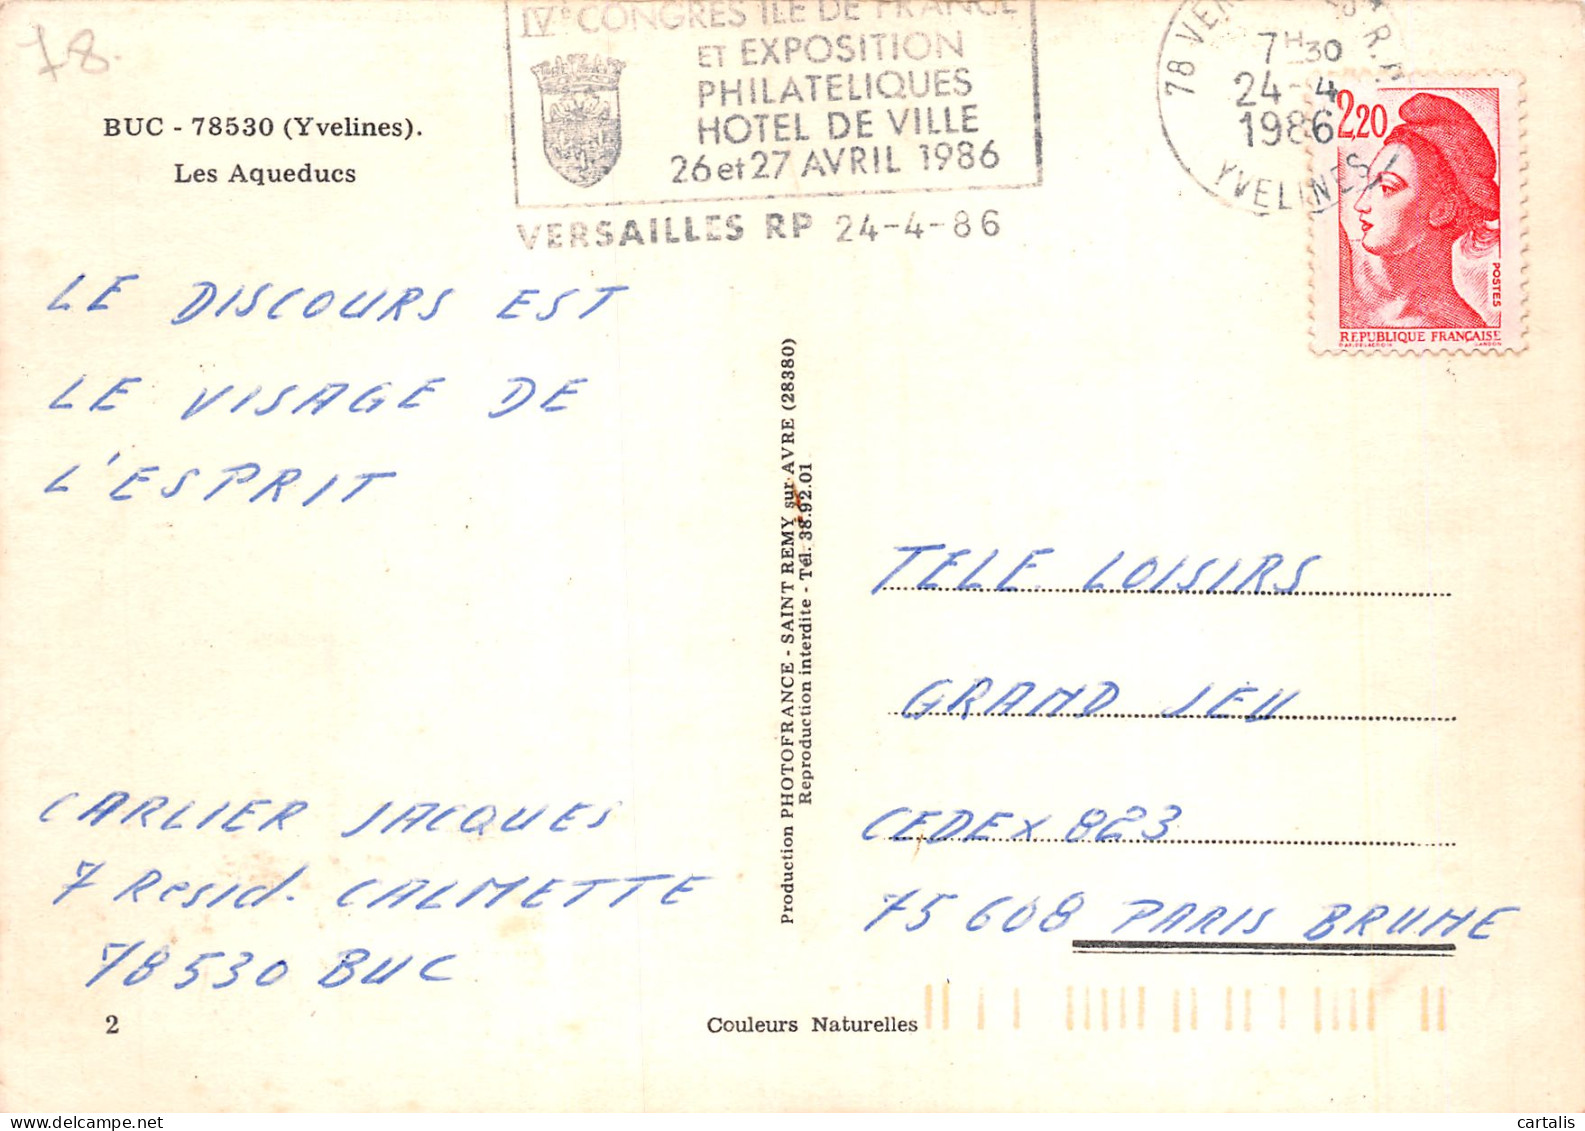 78.
BUC - 78530 (Yvelines).
Les Aqueducs
IVe CONGRES ILE DE FRANCE
ET EXPOSITION
PHILATELIQUES
HOTEL DE VILLE
26 et 27 AVRIL 1986
VERSAILLES RP 24-4-86
7H30
24-4
1986
YVELINES
2,20
POSTES
REPUBLIQUE FRANÇAISE
LE DISCOURS EST
LE VISAGE DE
L'ESPRIT
CARLIER JACQUES
7 Resid. CALMETTE
78530 BUC
2
Production PHOTOFRANCE - SAINT REMY sur AVRE (28380)
Reproduction interdite - Tél. 38.92.01
TELE LOISIRS
GRAND JEU
CEDEX 823
75608 PARIS BRUNE
Couleurs Naturelles
cartalis